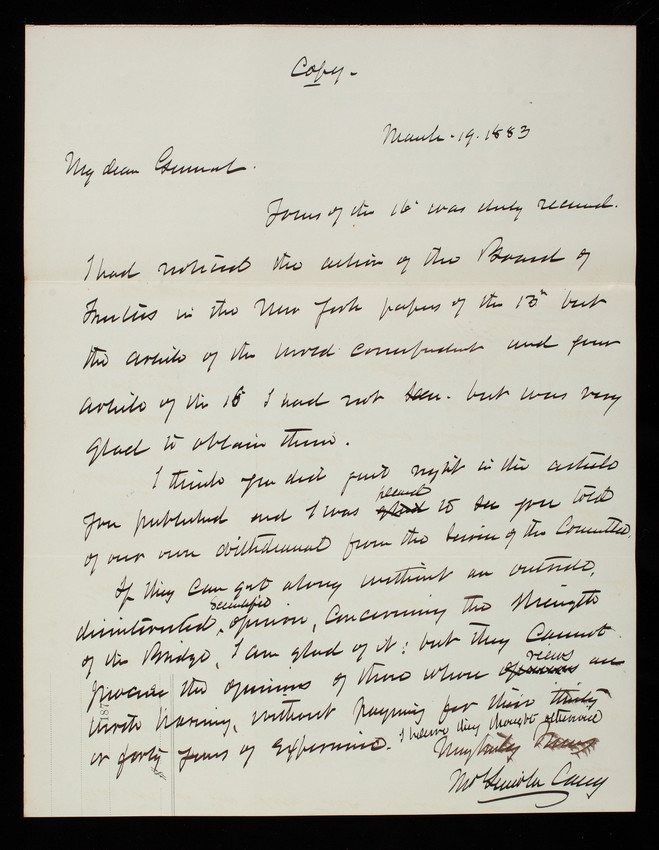 Copy -
March - 19. 1883
My dear General.
Yours of the 16th was duly received.
I had noticed the action of the Board of
Trustees in the New York papers of the 13th but
the article of the World correspondent and your
article of the 15 I had not seen - but was very
glad to obtain them.
I think you did just right in the article
pleased
you published and I was glad to see you told
of our own withdrawal from the service of the Committee.
If they can get along without an outside,
scientific
disinterested, opinion, concerning the strength
of the Bridge, I am glad of it; but they cannot
views
procure the opinions of those whose opinions are
worth having, without paying for their thirty
or forty years of experience.
I believe they thought otherwise
Very truly Yours
Thos Lincoln Casey
187